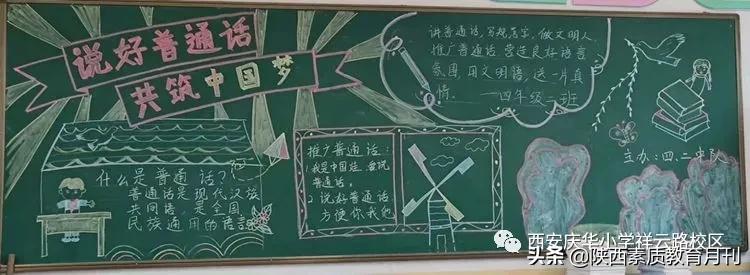 说好普通话
共筑中国梦
讲普通话,写规范字,做文明人
推广普通话 营造良好语言
氛围 用文明语 送一片真
情. —四年级二班
什么是普通话?
普通话是现代汉族
共同语,是全国
民族通用的语言
推广普通话:
1.我是中国娃,要说
普通话。
2.说好普通话
方便你我他
主办:四、二中队
西安庆华小学祥云路校区
头条@陕西素质教育月刊